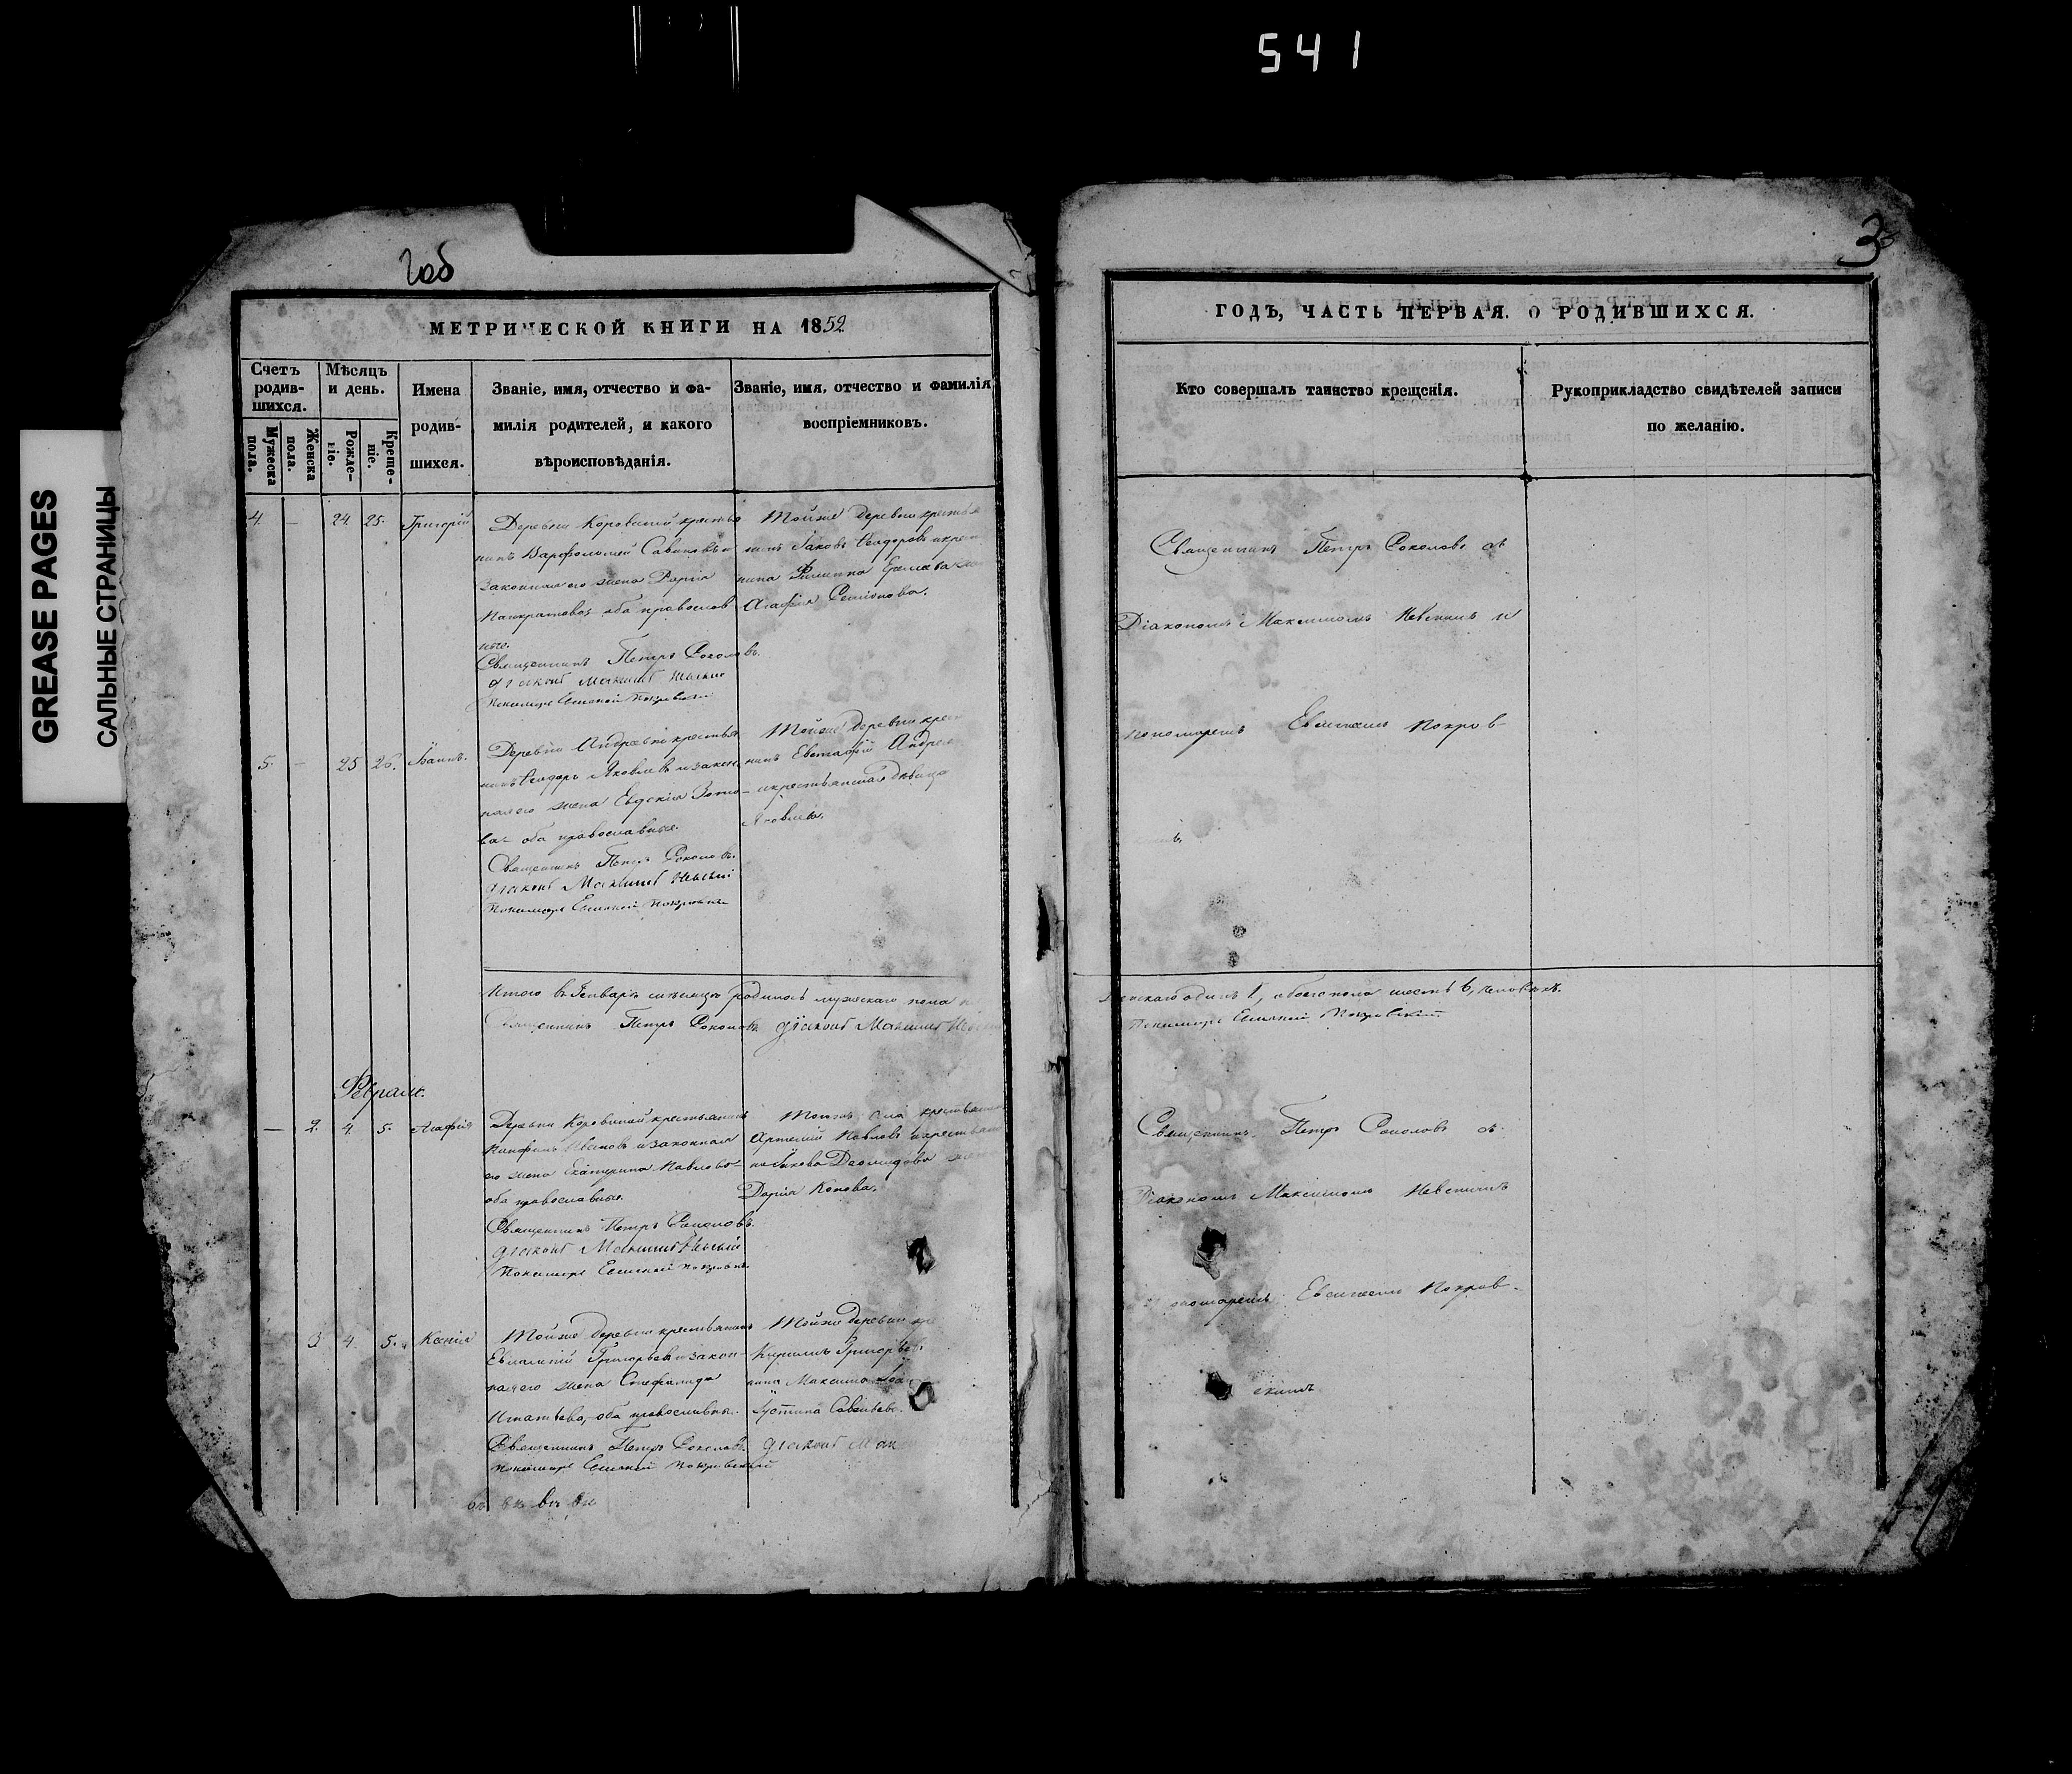 541
2об
3
GREASE PAGES
САЛЬНЫЕ СТРАНИЦЫ
МЕТРИЧЕСКОЙ КНИГИ НА 1852
Счетъ родив-шихся.
Мужеска пола.
Женска пола.
Мѣсяцъ и день.
Рожде-ніе.
Креще-ніе.
Имена
родив-
шихся.
Званіе, имя, отчество и фа-
милія родителей, и какого
вѣроисповѣданія.
Званіе, имя, отчество и фамилія
воспріемниковъ.
4. — 24 25. Григорій
Деревни Коровиной крестья
нинъ Варфоломей Савиновъ и
законная его жена Дарія
Панкратова, оба православ
ные.
Священникъ Петръ Соколовъ.
Діаконъ Максимъ Невскій
Пономарь Евсигній Покровскій
Тойже деревни крестья
нинъ Іаковъ Ѳеодоровъ и крест
нина Филиппа
Агафія Семіонова.
5. — 25 26. Іоаннъ.
Деревни крестья
нинъ Ѳеодоръ Яковлевъ и закон
ная его жена Евдокія Зото-
ва- оба православные.
Священникъ Петръ Соколовъ.
Діаконъ Максимъ Невскій
Пономарь Евсигній Покровскій
Тойже деревни крес
нинъ Евстафій Андре
и крестьянская дѣвица
Яковлева.
Итого въ Генварѣ мѣсяцѣ родилось мужескаго пола
Священникъ Петръ Соколовъ. Діаконъ Максимъ Невскій
Февраль.
— 2. 4. 5. Агафія
Деревни Коровиной крестьянинъ
Ивановъ и законная
его жена Екатерина Павлова-
оба православные.
Священникъ Петръ Соколовъ.
Діаконъ Максимъ Невскій
Пономарь Евсигній Покровскій
крестьянинъ
Артемій Павловъ и крестьян
нина Іакова Діомидова
Дарія Конова.
3 4. 5. Ксенія
Тойже деревни крестьянинъ
Евсигній Григорьевъ и закон-
ная его жена Стефанида
Игнатьева, оба православные.
Священникъ Петръ Соколовъ. Діаконъ Мак
Пономарь Евсигній Покровскій
Тойже деревни кре
Кириллъ Григорьевъ
нина Максима
Іустина Савельева.
ГОДЪ, ЧАСТЬ ПЕРВАЯ. О РОДИВШИХСЯ.
Кто совершалъ таинство крещенія.
Рукоприкладство свидѣтелей записи
по желанію.
Священникъ Петръ Соколовъ съ
Діакономъ Максимомъ Невскимъ и
пономаремъ Евсигніемъ Покров-
скимъ.
женскаго одинъ 1, обоего пола шесть 6, человѣкъ.
Пономарь Евсигній Покровскій
Священникъ Петръ Соколовъ съ
Діакономъ Максимомъ Невскимъ
пономаремъ Евсигніемъ Покров-
скимъ